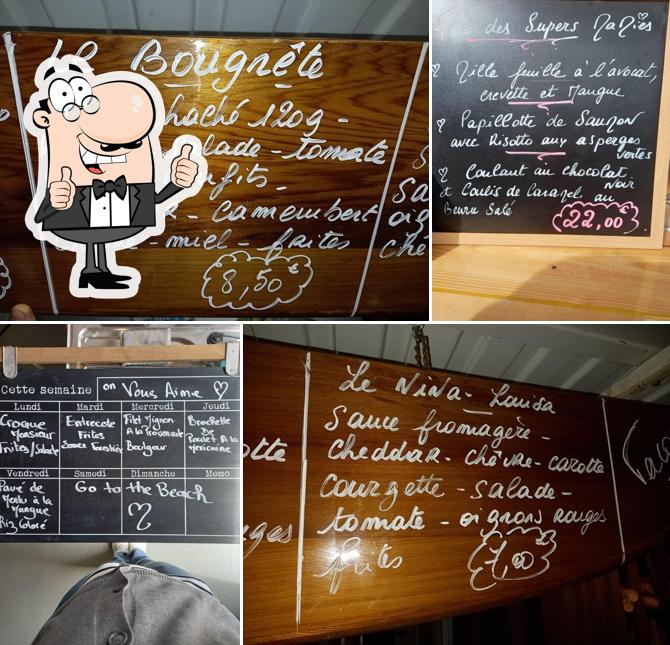 Le Bougnête
haché 120g -
lade - tomate
fits -
- camembert
- miel - frites
8,50€
des Supers Mamies
Mille feuille à l'avocat,
crevette et Mangue
Papillotte de Saumon
avec Risotto aux asperges
vertes
Coulant au chocolat
Noir
et Coulis de Caramel au
Beurre Salé
22,00€
Cette semaine on Vous Aime
Lundi Mardi Mercredi Jeudi
Croque
Monsieur
Frites/Salade
Entrecote
Frites
Sauce Forestière
Filet Mignon
A la Provençale
Boulgour
Brochette
De
Poulet A la
Mexicaine
Vendredi Samedi Dimanche Memo
Pavé de
Merlu à la
Mangue
Riz Coloré
Go to the Beach
Le Nina-Louisa
Sauce fromagère -
cheddar - chèvre - carotte
courgette - salade -
tomate - oignons rouges
frites
7,00